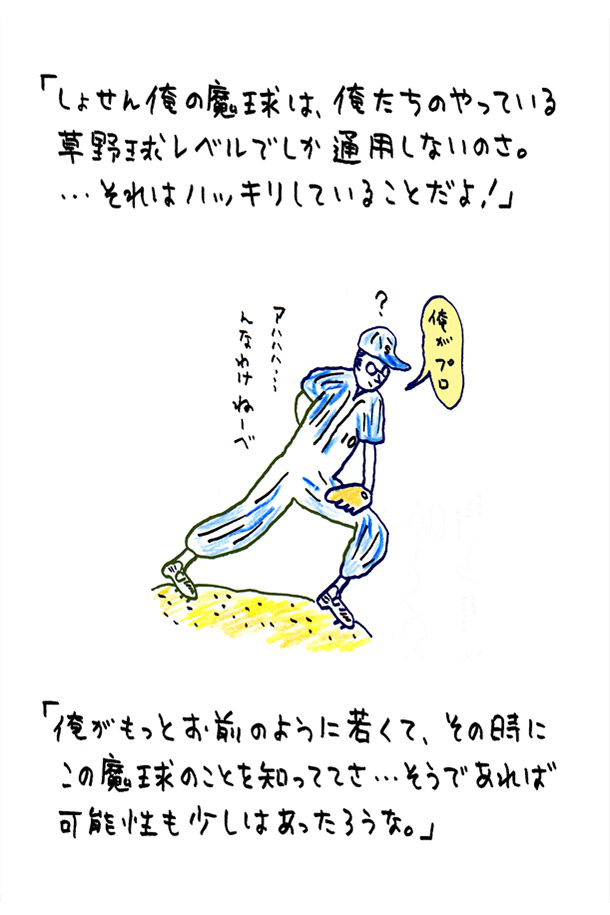 「しょせん俺の魔球は、俺たちのやっている
草野球レベルでしか通用しないのさ。
…それはハッキリしていることだよ！」
？
俺がプロ
アハハハ…
んなわけねーべ
S
10
「俺がもっとお前のように若くて、その時に
この魔球のことを知っててさ…そうであれば
可能性も少しはあったろうな。」